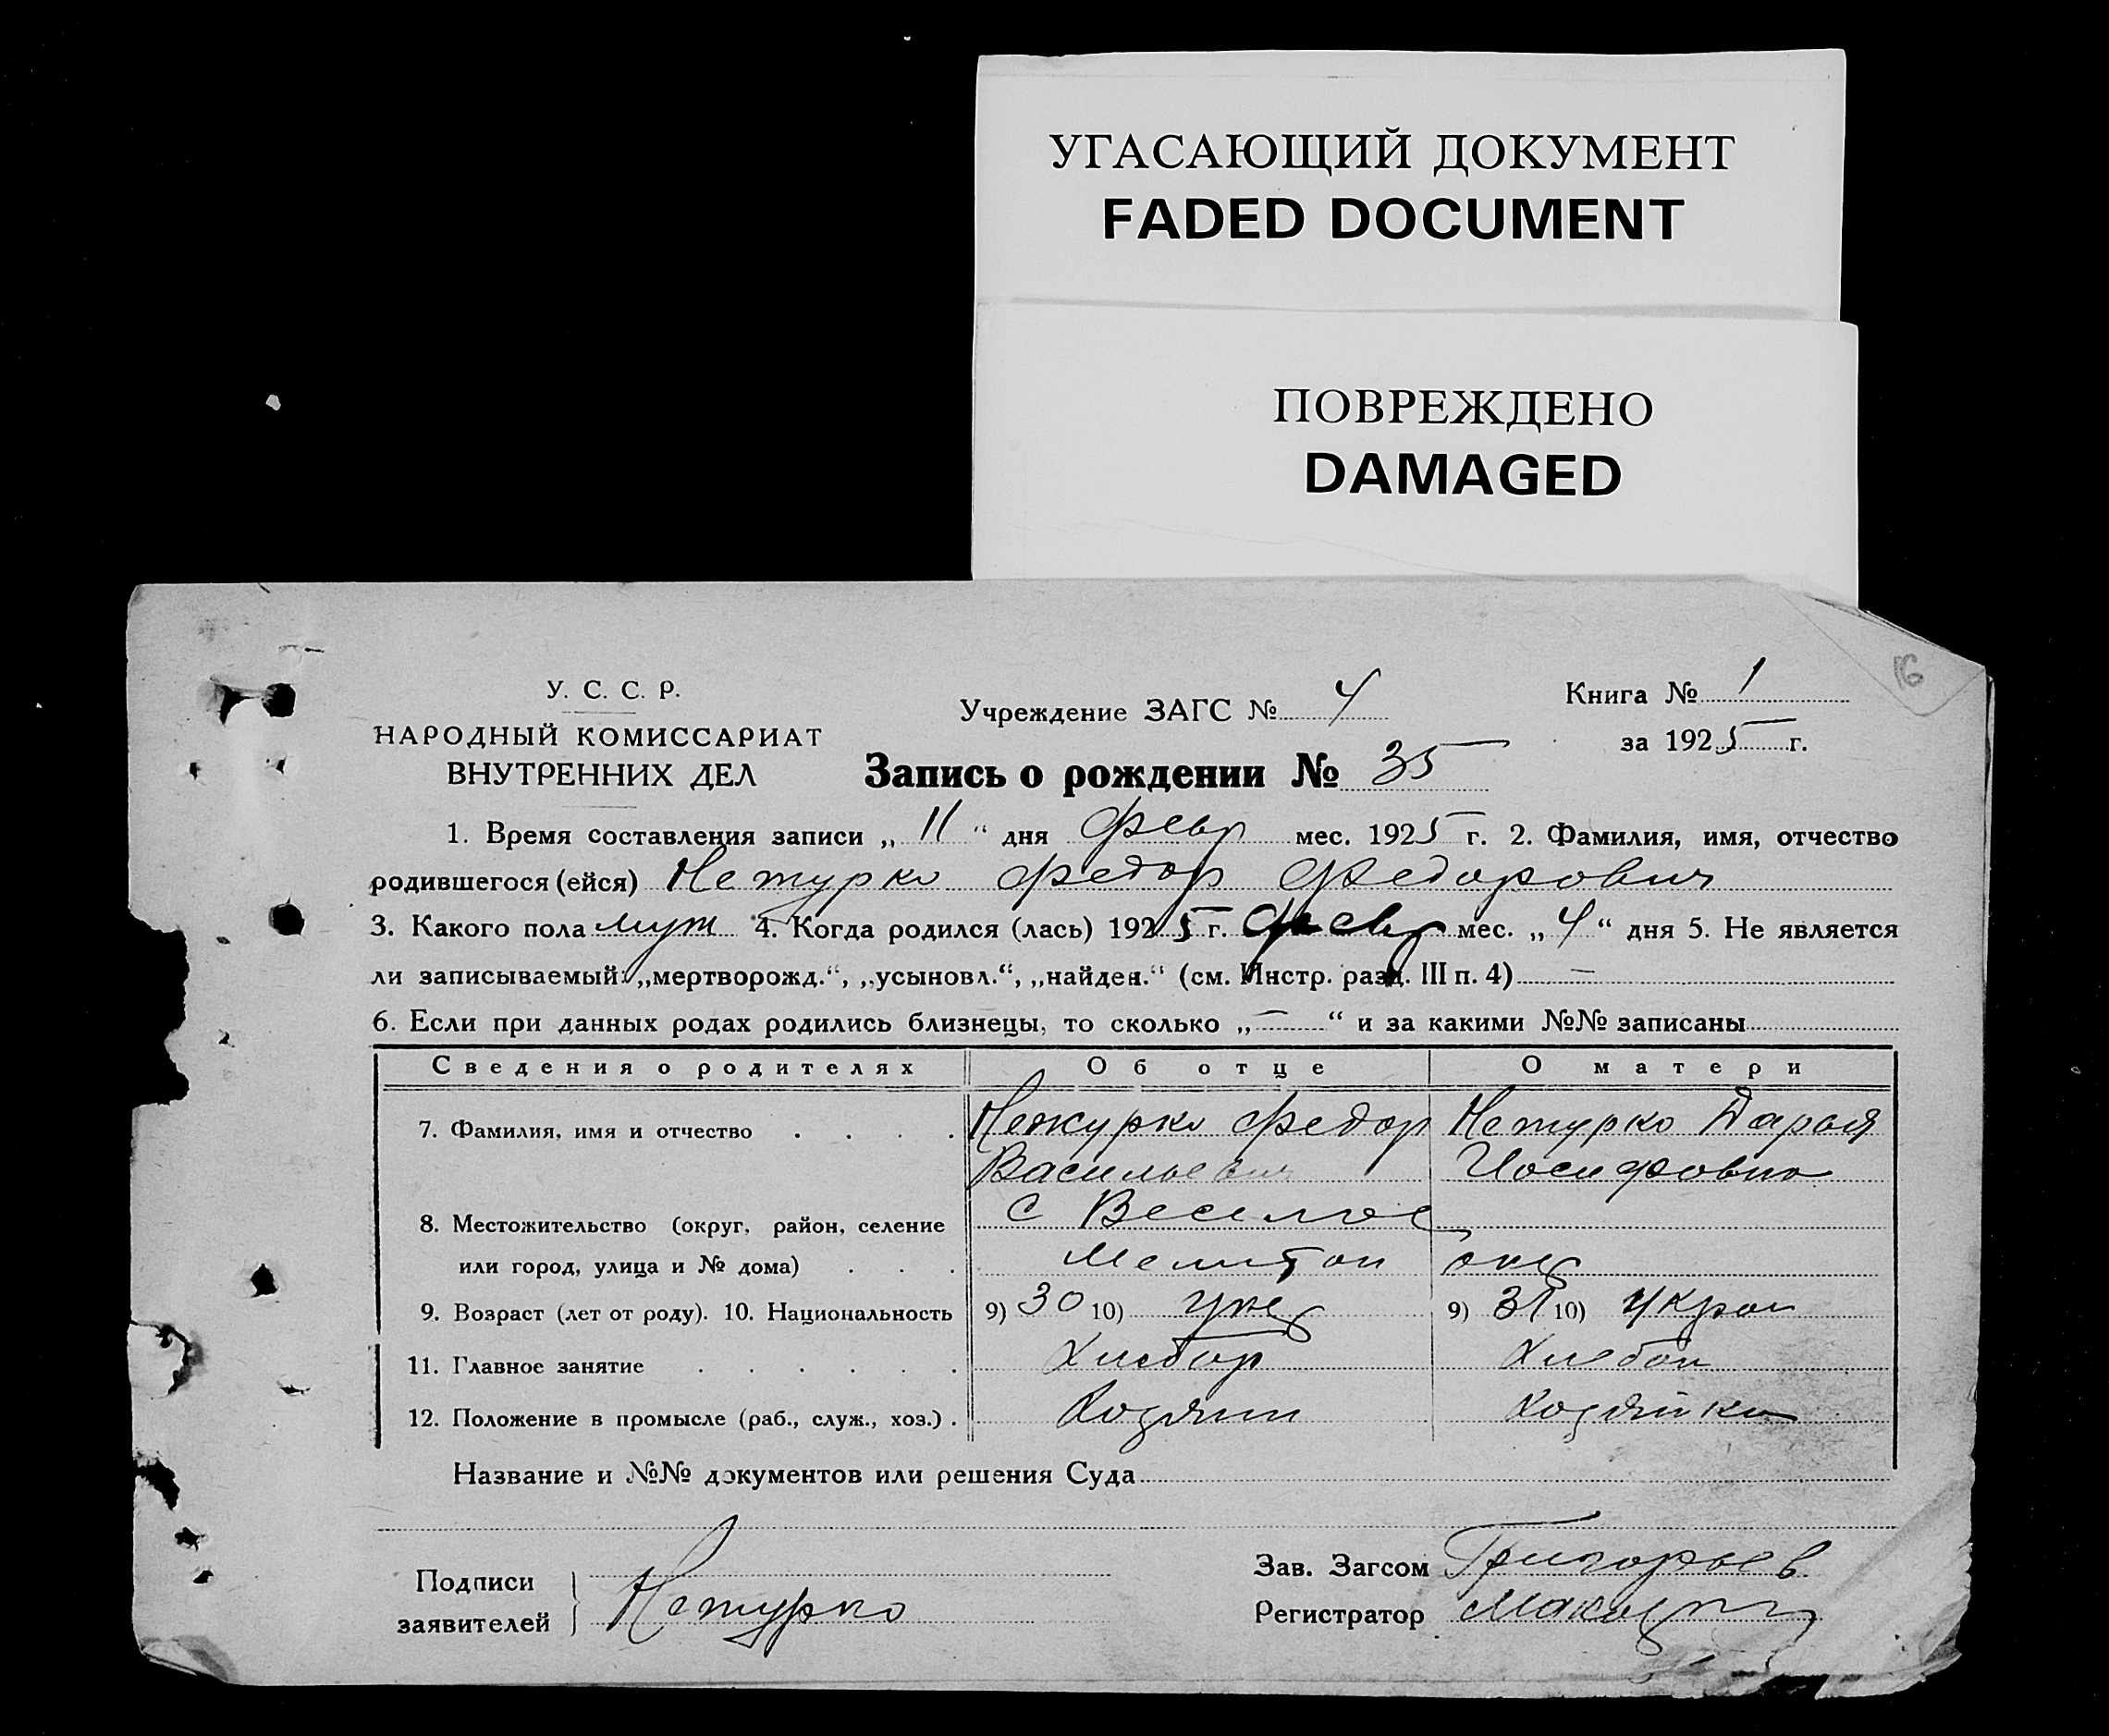 УГАСАЮЩИЙ ДОКУМЕНТ
FADED DOCUMENT
ПОВРЕЖДЕНО
DAMAGED
16
У. С. С. Р.
НАРОДНЫЙ КОМИССАРИАТ
ВНУТРЕННИХ ДЕЛ
Учреждение ЗАГС № 4
Книга № 1
за 1925 г.
Запись о рождении № 35
1. Время составления записи „ 11 “ дня Февр мес. 1925 г. 2. Фамилия, имя, отчество
родившегося (ейся) Федор Федорович
3. Какого пола муж 4. Когда родился (лась) 1925 г. февр мес. „ 4 “ дня 5. Не является
ли записываемый: „мертворожд.“, „усыновл.“, „найден.“ (см. Инстр. разд. III п. 4) —
6. Если при данных родах родились близнецы, то сколько „ — “ и за какими №№ записаны
Сведения о родителях Об отце О матери
7. Фамилия, имя и отчество . . . . Федор Дарья
Васильевич Иосифовна
8. Местожительство (округ, район, селение с Веселое
или город, улица и № дома) . . . Мелитоп окр
9. Возраст (лет от роду). 10. Национальность 9) 30 10) укр 9) 31 10) Украи
11. Главное занятие . . . . . . Хлебор Хлебоп
12. Положение в промысле (раб., служ., хоз.) . Хозяин Хозяйка
Название и №№ документов или решения Суда
Подписи
заявителей
Зав. Загсом Григорьев
Регистратор